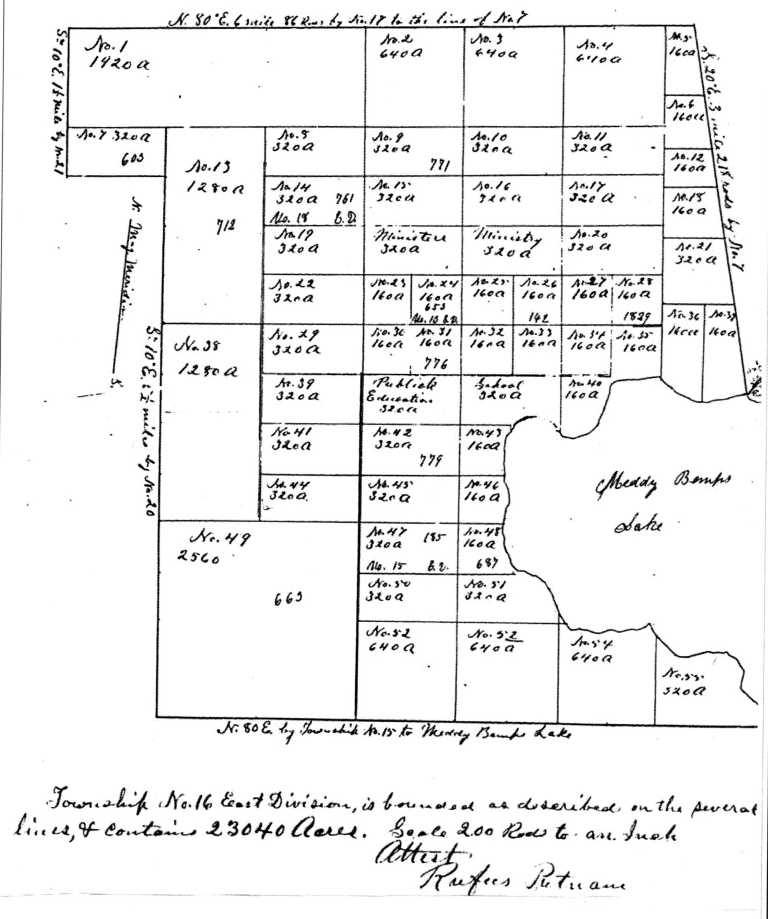 N. 80°E. 6 mile 86 Rods by No. 17 to the line of No. 7
S. 10°E. 1½ miles by No. 21
No. 1
1920 a
No. 2
640 a
No. 3
640 a
No. 4
640 a
No. 5
160 a
S. 20°E. 3 mile 218 rods by No. 7
No. 6
160 a
No. 7 320 a
603
No. 13
1280 a
712
No. 8
320 a
No. 9
320 a
771
No. 10
320 a
No. 11
320 a
No. 12
160 a
No. 14
320 a 761
No. 18 E.D.
No. 15
320 a
No. 16
320 a
No. 17
320 a
No. 18
160 a
No. 19
320 a
Ministers
320 a
Ministry
320 a
No. 20
320 a
No. 21
320 a
N. Mag Meridian S.
No. 22
320 a
No. 23
160 a
No. 24
160 a
653
No. 15 E.D.
No. 25
160 a
No. 26
160 a
142
No. 27
160 a
No. 28
160 a
1829
S. 10°E. 4½ miles by No. 20
No. 38
1280 a
No. 29
320 a
No. 30
160 a
No. 31
160 a
776
No. 32
160 a
No. 33
160 a
No. 34
160 a
No. 35
160 a
No. 36
160 a
No. 37
160 a
No. 39
320 a
Publick
Education
320 a
School
320 a
No. 40
160 a
No. 41
320 a
No. 42
320 a
779
No. 43
160 a
Meddy Bemps
Lake
No. 44
320 a
No. 45
320 a
No. 46
160 a
No. 49
2560
663
No. 47
320 a 185
No. 15 E.D.
No. 48
160 a
687
No. 50
320 a
No. 51
320 a
No. 52
640 a
No. 52
640 a
No. 54
640 a
No. 55
320 a
N. 80 E. by Township No. 15 to Meddy Bemps Lake
Township No. 16 East Division, is bounded as described on the several
lines, & contains 23040 Acres. Scale 200 Rods to an Inch
Attest
Rufus Putnam